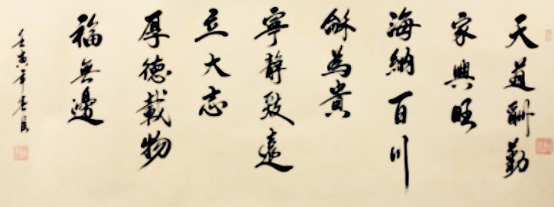 天道酬勤
家興旺
海納百川
龢為貴
寧靜致遠
立大志
厚德載物
福無邊
壬寅年